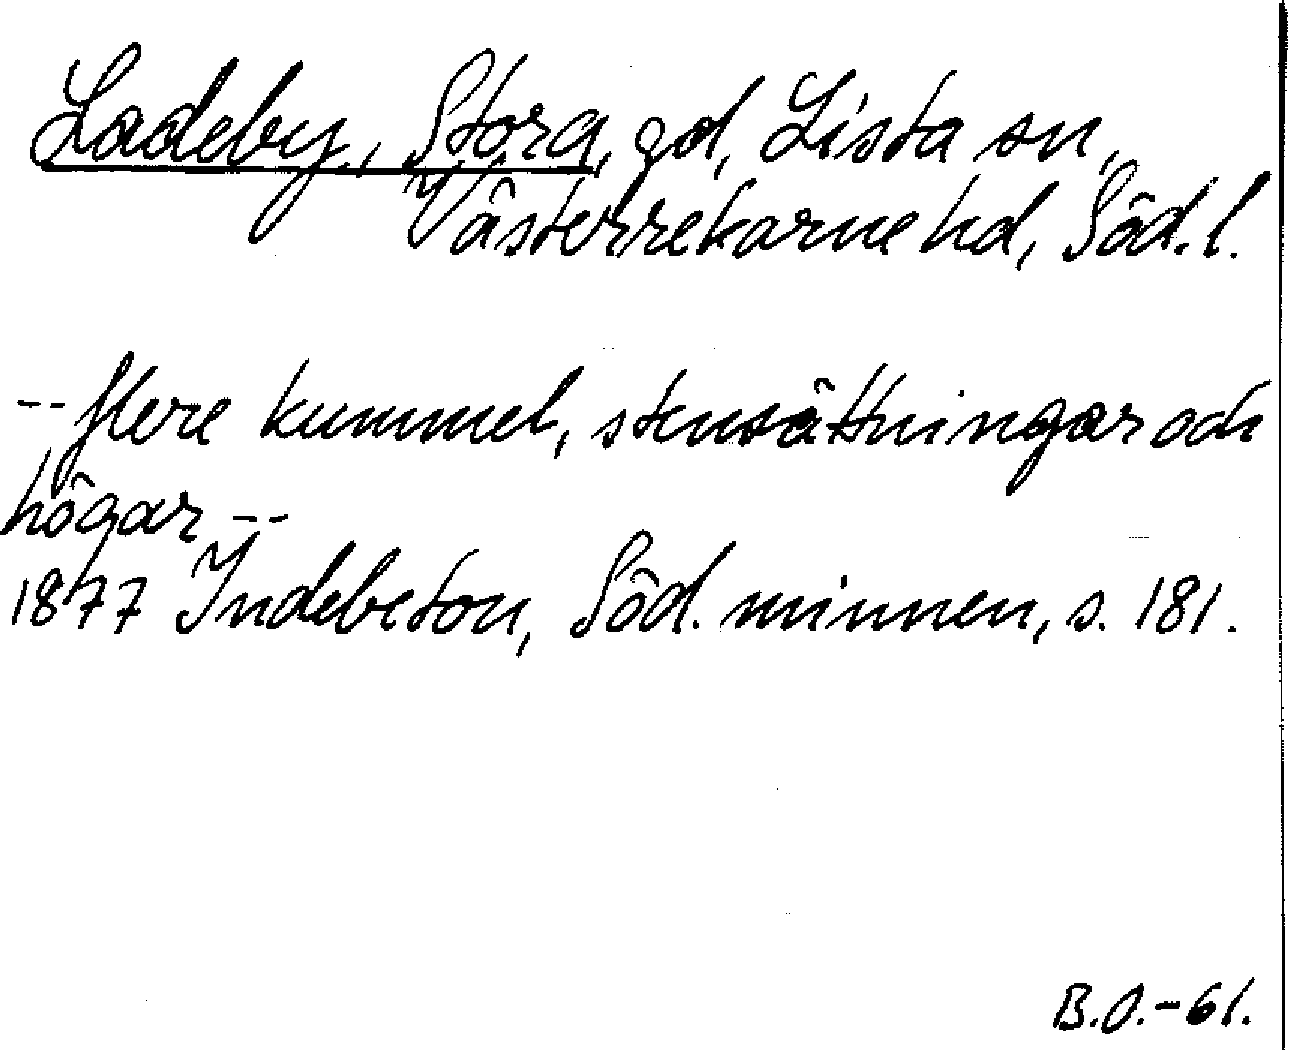 Ladeby, Stora, gd, Lista sn,
Västerrekarne hd, Söd.l.
-- flere kummel, stensättningar och
högar --
1877 Indebetou, Söd. minnen, s. 181.
B.O.-61.